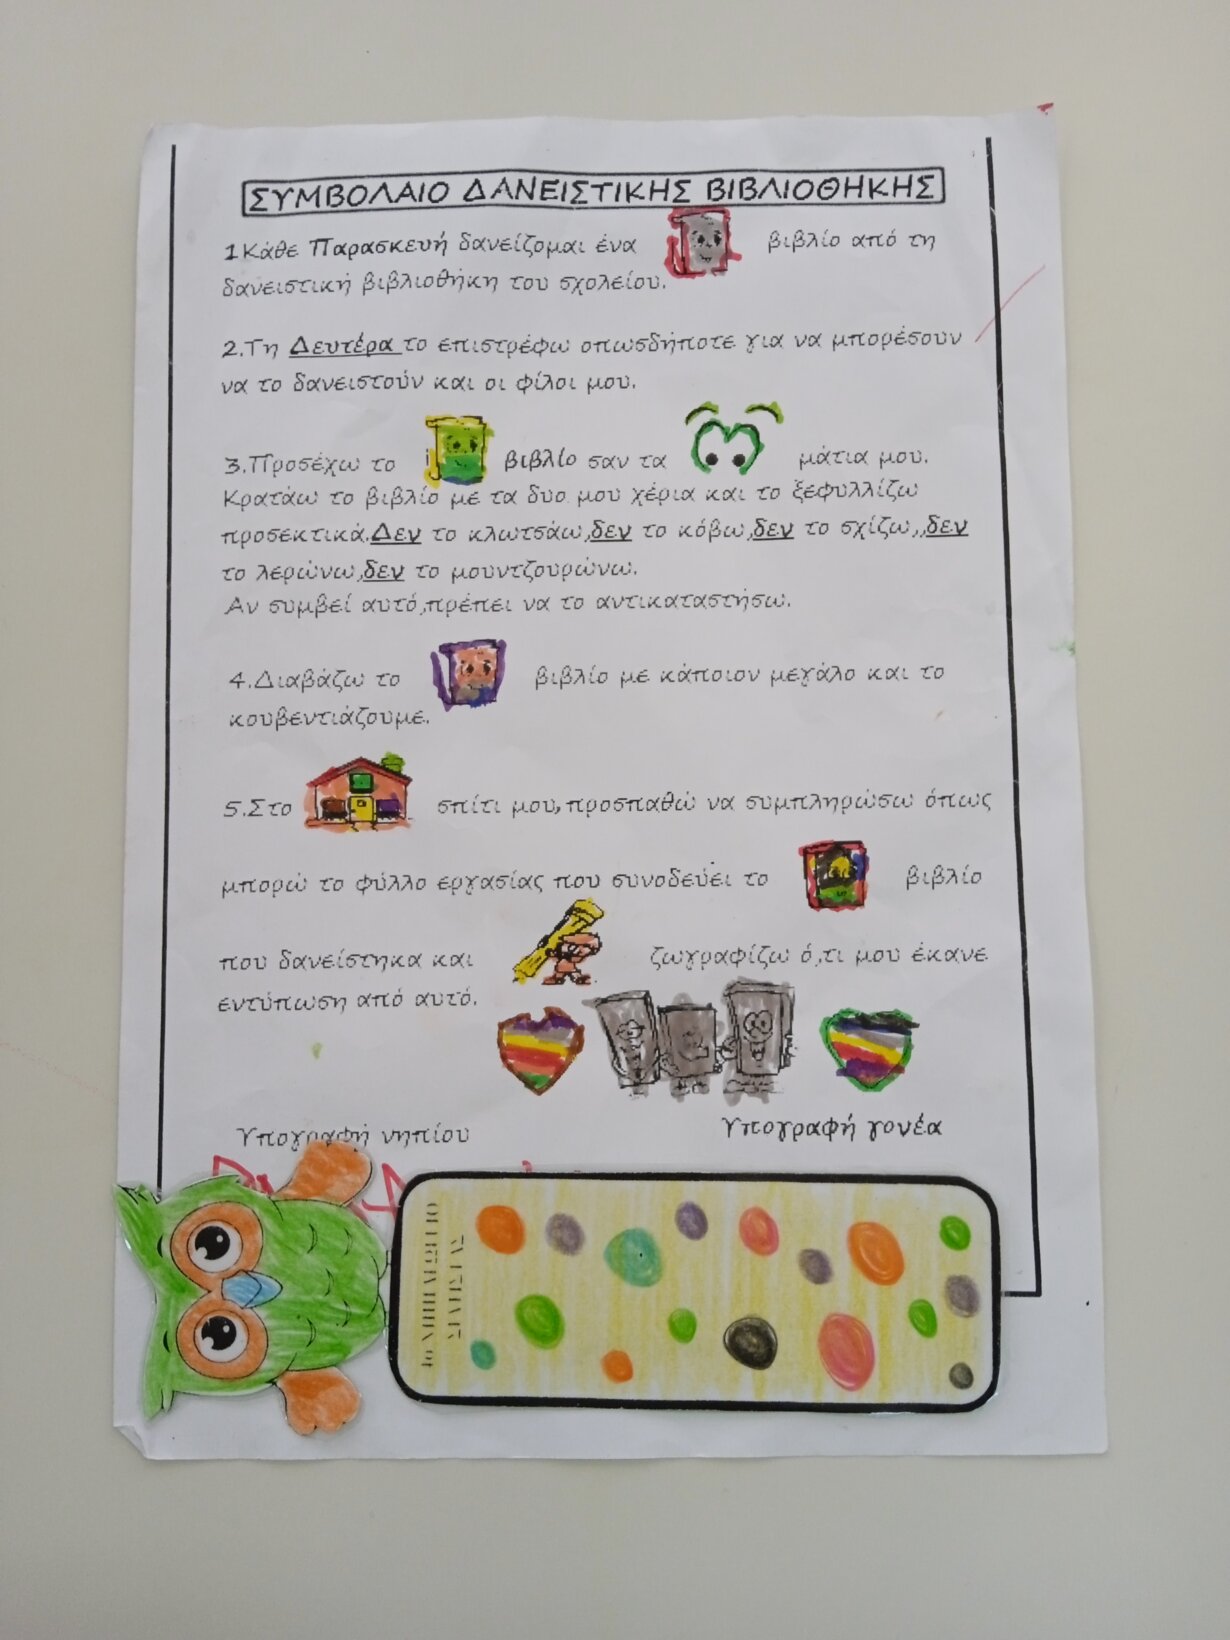 ΣΥΜΒΟΛΑΙΟ ΔΑΝΕΙΣΤΙΚΗΣ ΒΙΒΛΙΟΘΗΚΗΣ
1 Κάθε Παρασκευή δανείζομαι ένα βιβλίο από τη
δανειστική βιβλιοθήκη του σχολείου.
2.Τη Δευτέρα το επιστρέφω οπωσδήποτε για να μπορέσουν
να το δανειστούν και οι φίλοι μου.
3.Προσέχω το βιβλίο σαν τα μάτια μου.
Κρατάω το βιβλίο με τα δυο μου χέρια και το ξεφυλλίζω
προσεκτικά.Δεν το κλωτσάω,δεν το κόβω,δεν το σχίζω,,δεν
το λερώνω,δεν το μουντζουρώνω.
Αν συμβεί αυτό,πρέπει να το αντικαταστήσω.
4.Διαβάζω το βιβλίο με κάποιον μεγάλο και το
κουβεντιάζουμε.
5.Στο σπίτι μου,προσπαθώ να συμπληρώσω όπως
μπορώ το φύλλο εργασίας που συνοδεύει το βιβλίο
που δανείστηκα και ζωγραφίζω ό,τι μου έκανε
εντύπωση από αυτό.
Υπογραφή νηπίου Υπογραφή γονέα
1ο ΝΗΠΙΑΓΩΓΕΙΟ